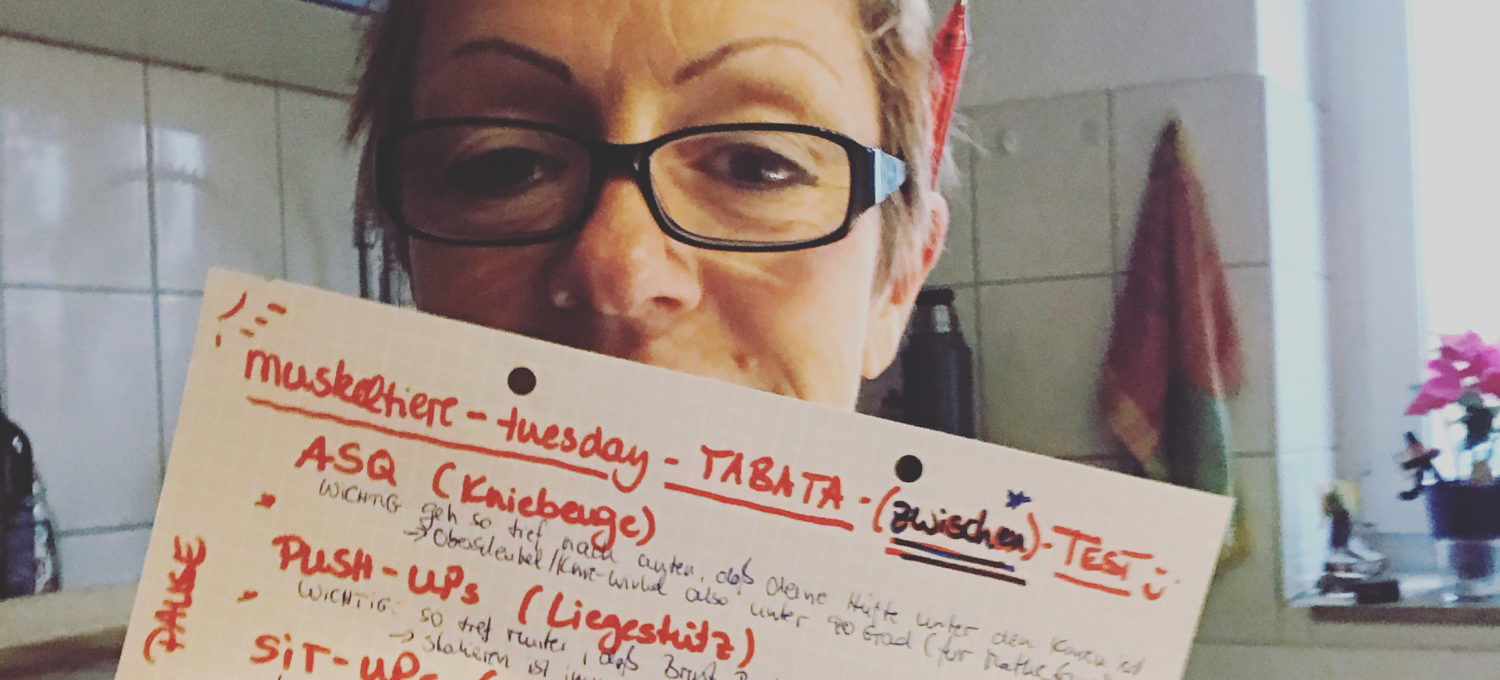 muskeltiere - tuesday - TABATA - (zwischen) - TEST
ASQ (Kniebeuge)
WICHTIG geh so tief nach unten, daß deine Hüfte unter den Knien ist
→ Oberschenkel/Knie-winkel also unter 90 Grad (für Mathe
PUSH-UPs (Liegestütz)
WICHTIG: so tief runter, daß Brust
→ ist
SiT-UPs (
PAUSE